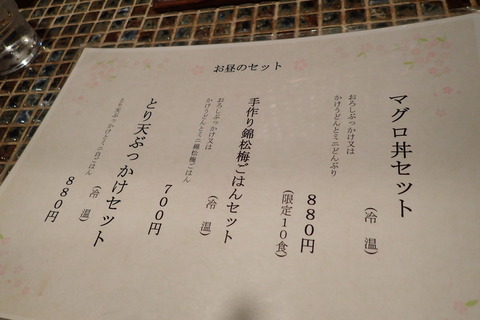 お昼のセット
マグロ丼セット
(冷 温)
おろしぶっかけ又は
かけうどんとミニどんぶり
880円
(限定10食)
手作り錦松梅ごはんセット
(冷 温)
おろしぶっかけ又は
かけうどんとミニ錦松梅ごはん
700円
とり天ぶっかけセット
(冷 温)
とり天ぶっかけとミニ白ごはん
880円